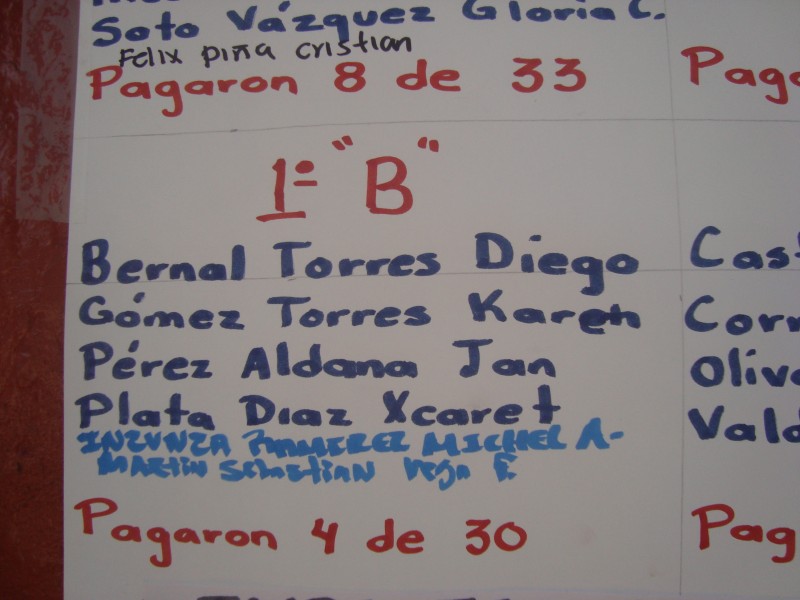 Soto Vázquez Gloria C.
Felix piña cristian
Pagaron 8 de 33
Pag
1º "B"
Bernal Torres Diego
Gómez Torres Karen
Pérez Aldana Jan
Plata Dıaz Xcaret
INZUNZA RAMIREZ MICHEL A-
MARTIN SEBASTIAN Vega F.
Pagaron 4 de 30
Cas
Corn
Oliv
Vald
Pag